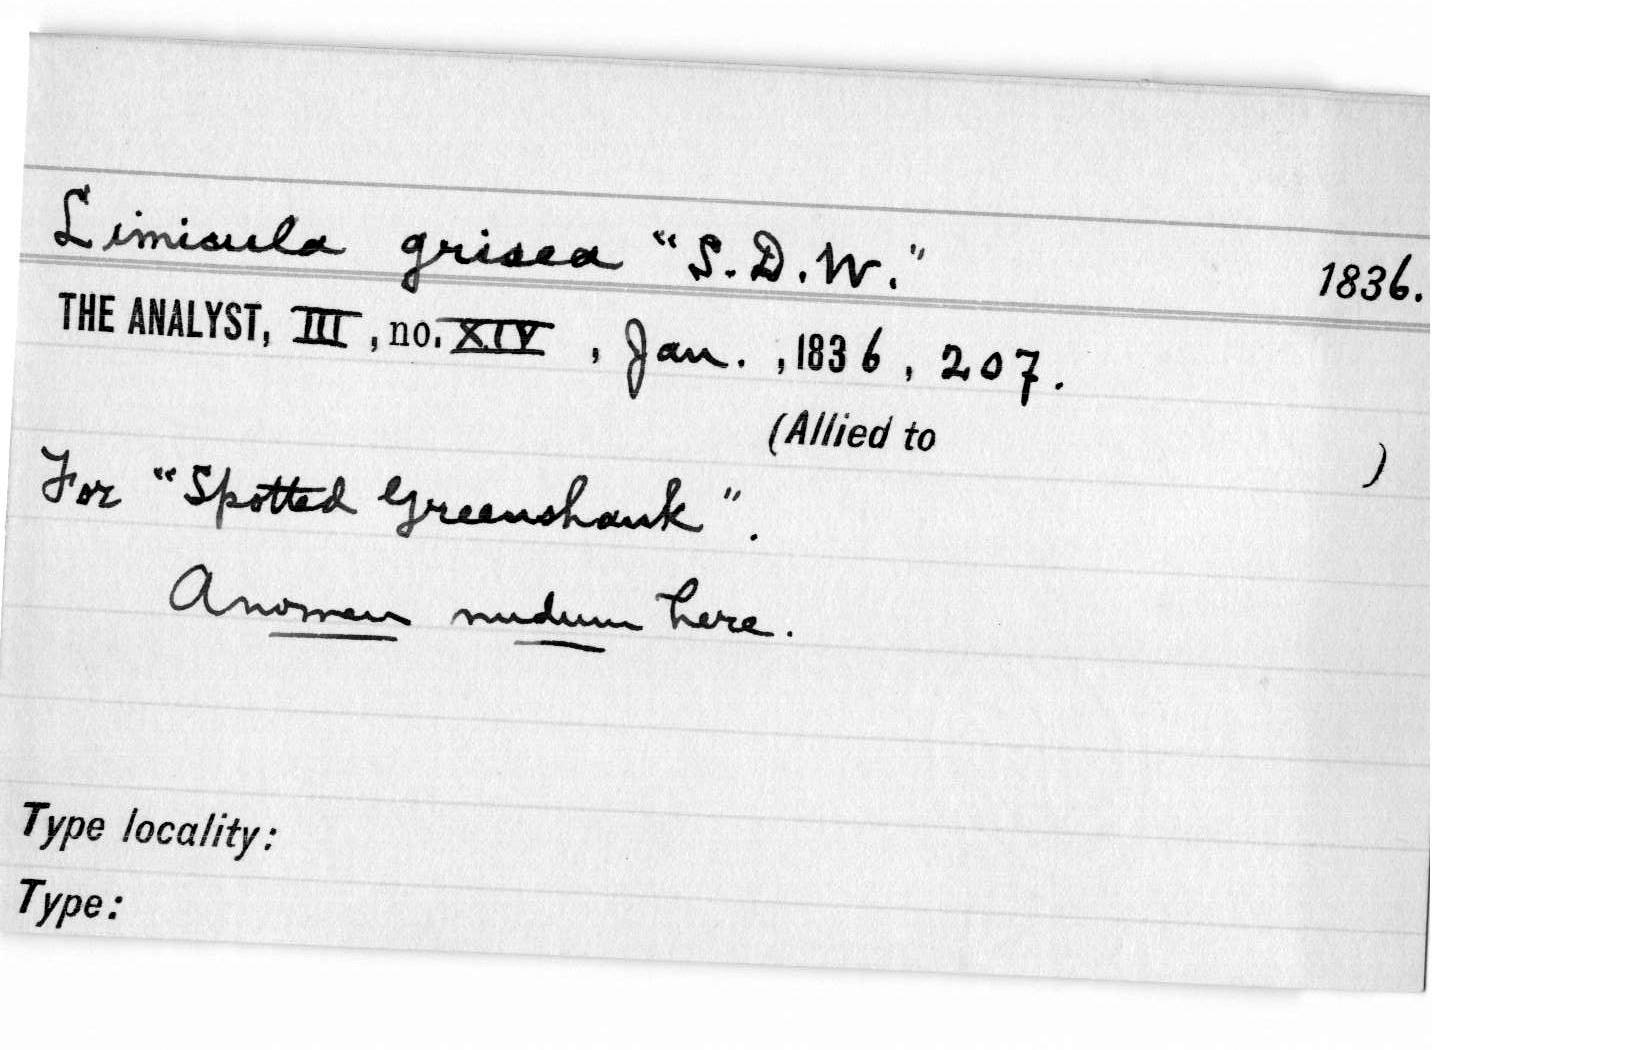 Limicula grisea "S.D.W." 1836.
THE ANALYST, III, no. XIV, Jan., 1836, 207.
(Allied to )
For "Spotted Greenshank".
A nomen nudum here.
Type locality:
Type: